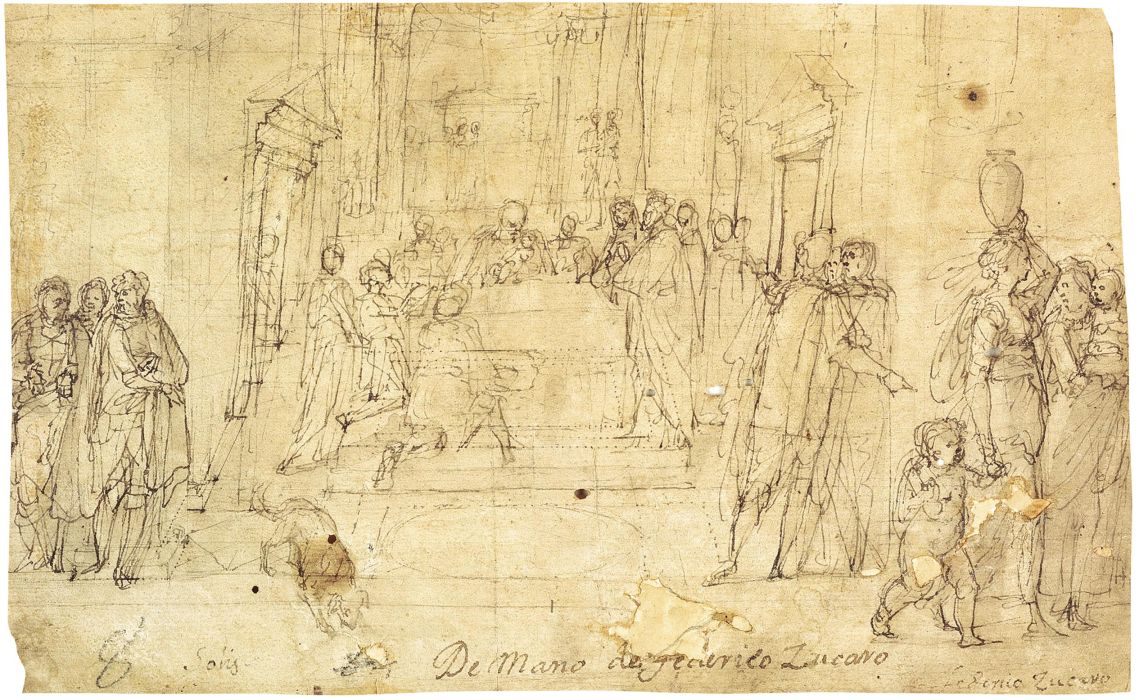 8 Solis
De Mano de Federico Zucaro
Zucaro